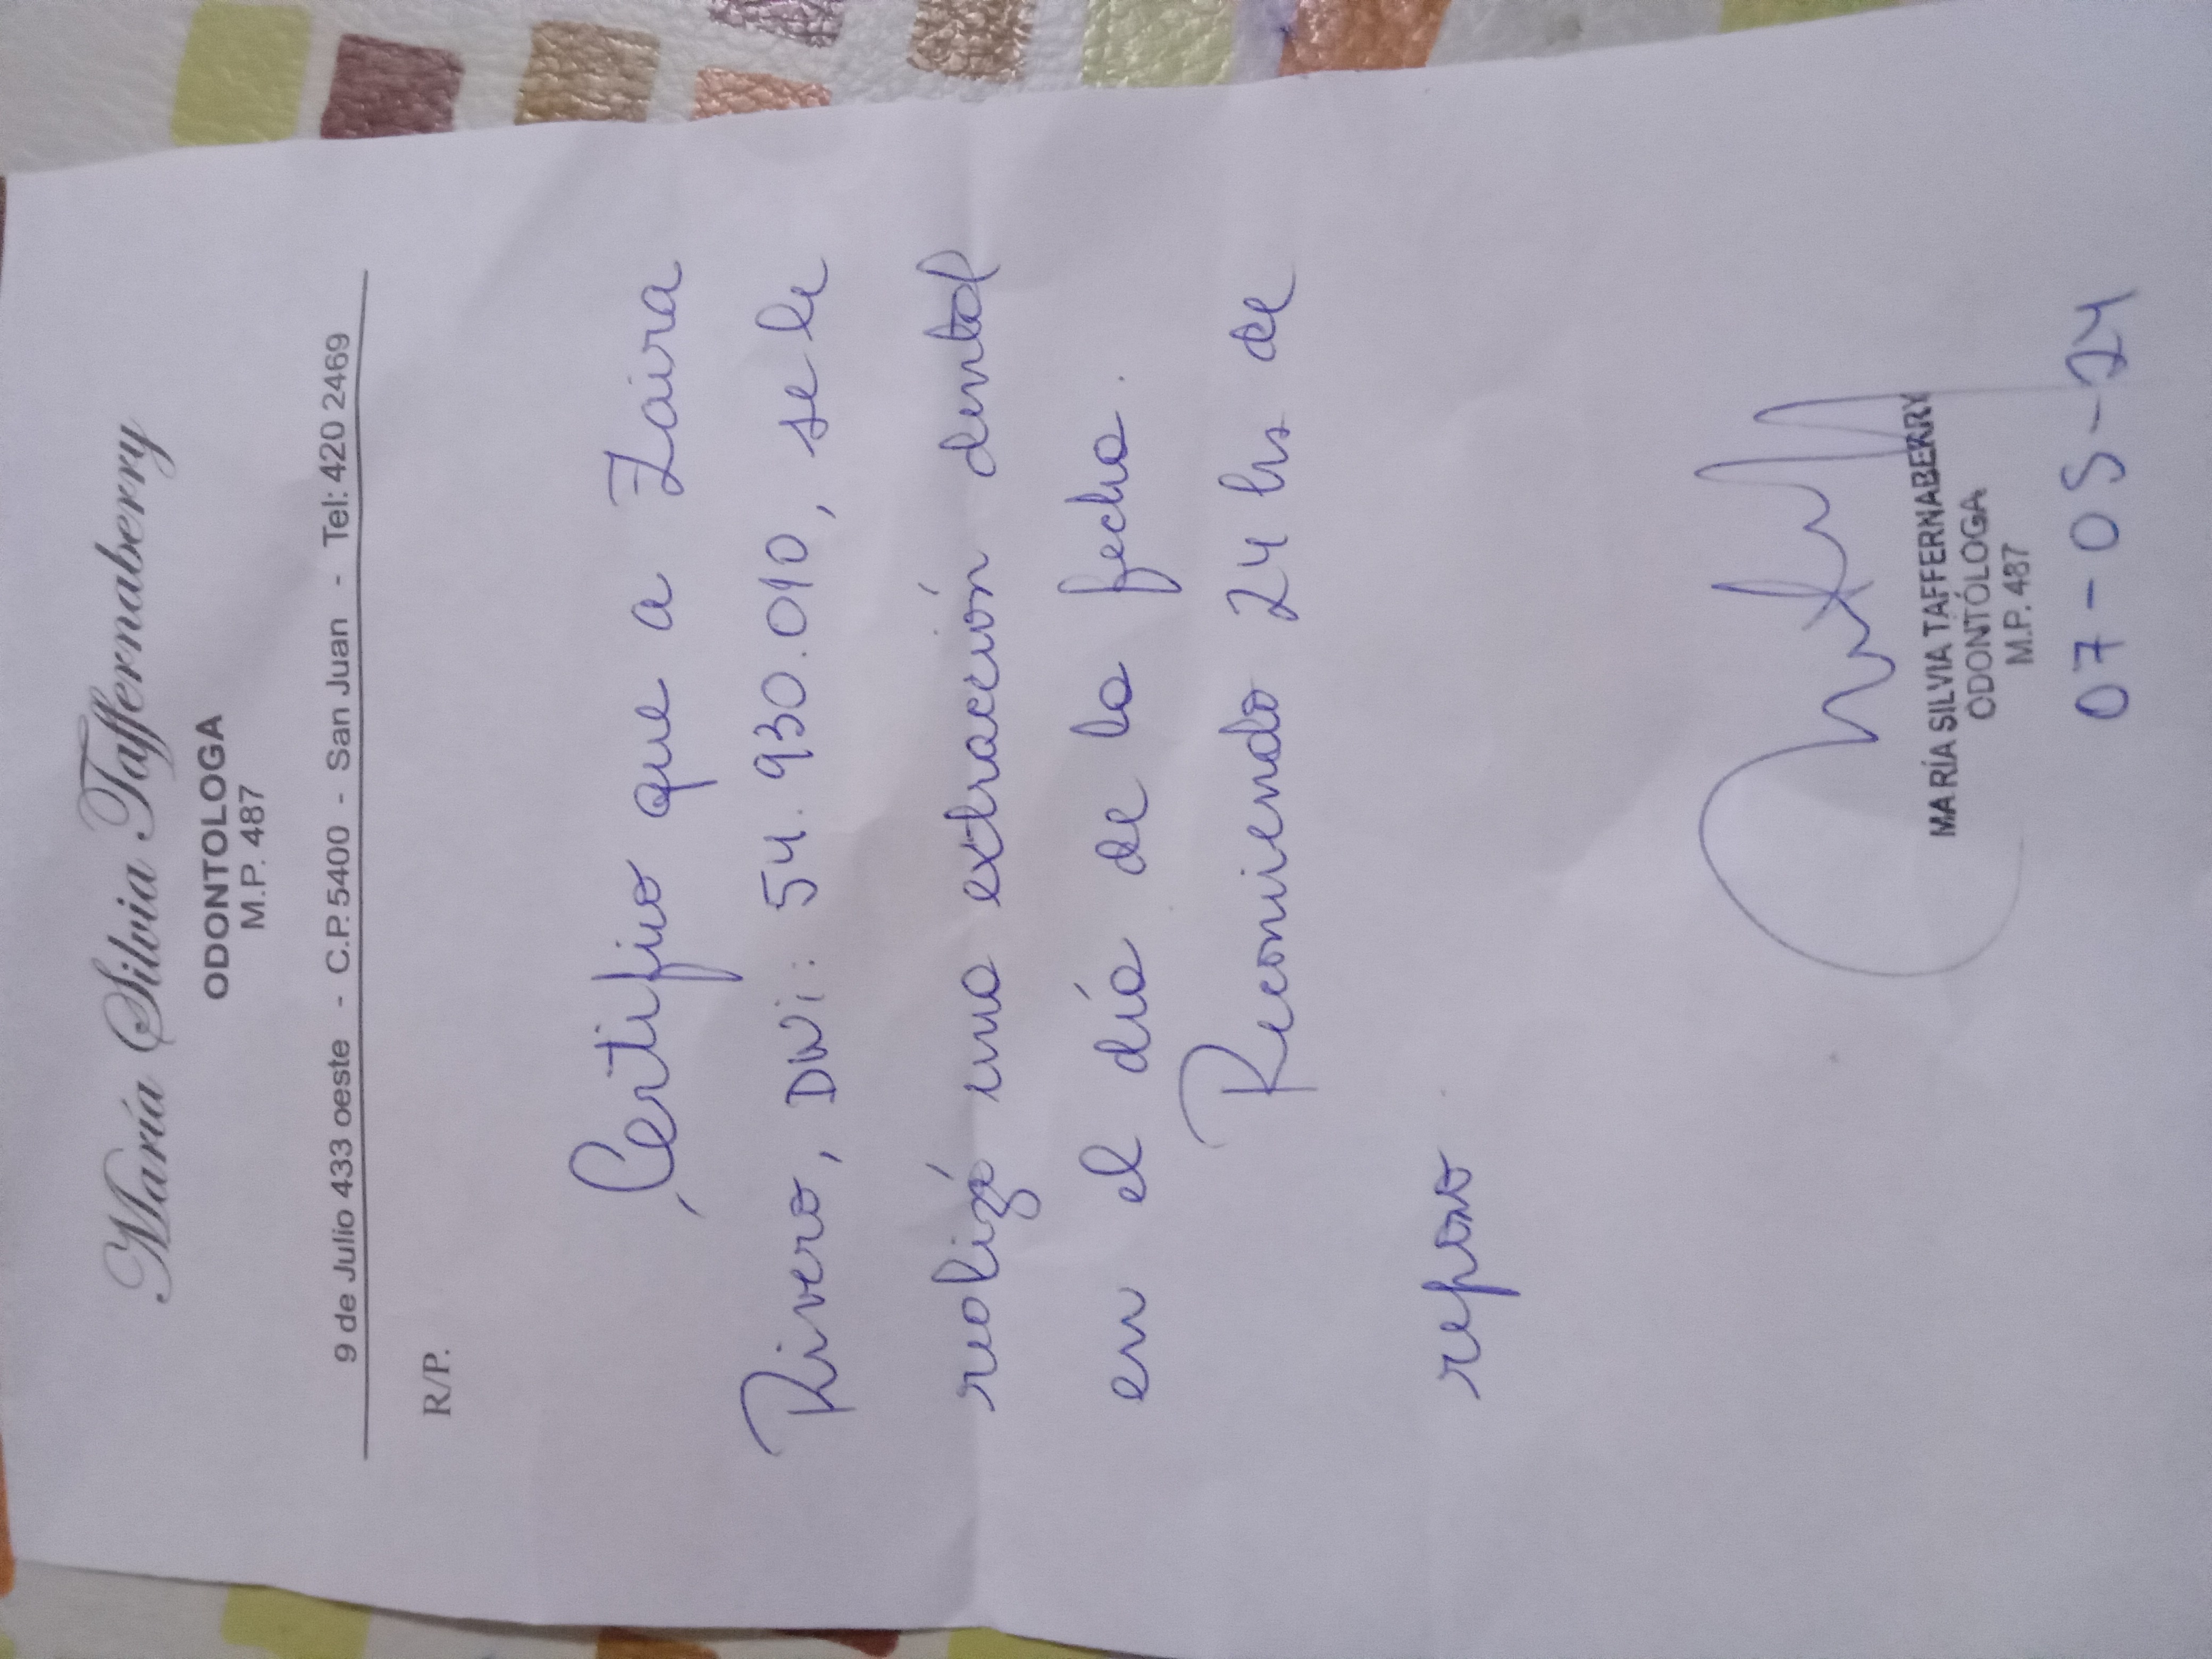 María Silvia Taffernaberry
ODONTOLOGA
M.P. 487
9 de Julio 433 oeste - C.P. 5400 - San Juan - Tel: 420 2469
R/P.
Certifico que a Zaira
Rivero, DNi: 54.930.010, se le
realizó una extracción dental
en el día de la fecha.
Recomiendo 24 hs de
reposo
MARÍA SILVIA TAFFERNABERRY
ODONTÓLOGA
M.P. 487
07-05-24